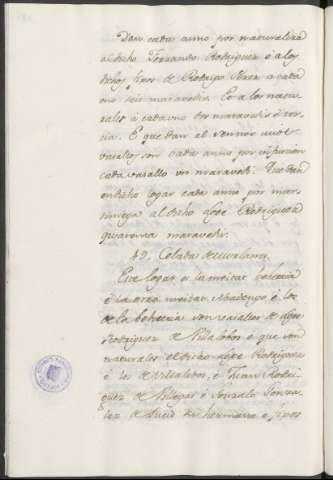 Dan cada anno por naturaleza
al dicho Ferrando Rodriguez é a los
fichos, fijos de Rodrigo Perez a cada
uno seis maravedis. E a los natu-
rales a cada uno tres maravedis é ter-
cia. E que dan al sennor cuios
vasallos son cada anno por infurcion
cada vasallo un maravedi. Que dan
en dicho logar cada anno por mar-
tiniega al dicho Lope Rodriguez
quarenta maravedis.
49. Celada
Este logar es la meitat behetria
é la otra meitat Abadengo, é los
de la behetria son vasallos de Lope
Rodriguez de Villalobos é que son
naturales el dicho Lope Rodriguez
é los de Villalobos, é Juan Rodri-
guez de Villegas é Gonzalo Gonza-
lez de Lucio su hermano é fijos